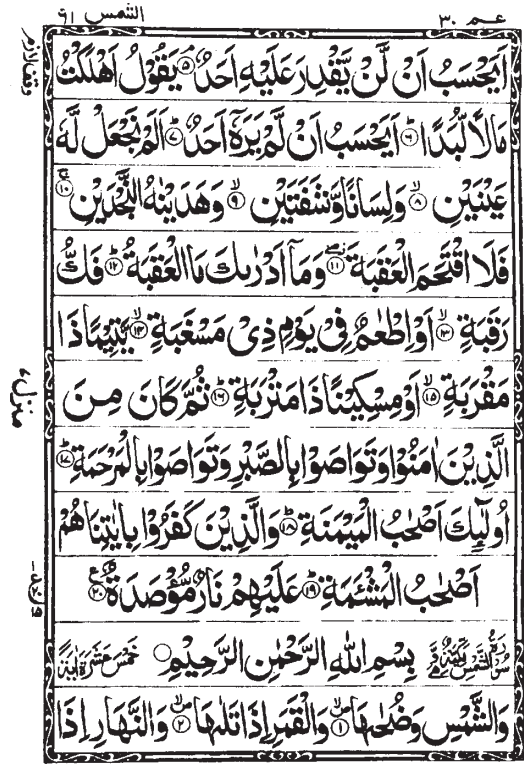 عم ٣٠
الشمس ٩١
اَيَحْسَبُ اَنْ لَّنْ يَّقْدِرَ عَلَيْهِ اَحَدٌ ۘ﴿۵﴾ يَقُوْلُ اَهْلَكْتُ
مَالًا لُّبَدًا ؕ﴿۶﴾ اَيَحْسَبُ اَنْ لَّمْ يَرَهٗۤ اَحَدٌ ؕ﴿۷﴾ اَلَمْ نَجْعَلْ لَّهٗ
عَيْنَيْنِ ۙ﴿۸﴾ وَلِسَانًا وَّشَفَتَيْنِ ۙ﴿۹﴾ وَهَدَيْنٰهُ النَّجْدَيْنِ ۚ﴿۱۰﴾
فَلَا اقْتَحَمَ الْعَقَبَةَ ۖ﴿۱۱﴾ وَمَاۤ اَدْرٰىكَ مَا الْعَقَبَةُ ؕ﴿۱۲﴾ فَكُّ
رَقَبَةٍ ۙ﴿۱۳﴾ اَوْ اِطْعٰمٌ فِيْ يَوْمٍ ذِيْ مَسْغَبَةٍ ۙ﴿۱۴﴾ يَّتِيْمًا ذَا
مَقْرَبَةٍ ۙ﴿۱۵﴾ اَوْ مِسْكِيْنًا ذَا مَتْرَبَةٍ ؕ﴿۱۶﴾ ثُمَّ كَانَ مِنَ
الَّذِيْنَ اٰمَنُوْا وَتَوَاصَوْا بِالصَّبْرِ وَتَوَاصَوْا بِالْمَرْحَمَةِ ؕ﴿۱۷﴾
اُولٰٓئِكَ اَصْحٰبُ الْمَيْمَنَةِ ؕ﴿۱۸﴾ وَالَّذِيْنَ كَفَرُوْا بِاٰيٰتِنَا هُمْ
اَصْحٰبُ الْمَشْـَٔمَةِ ؕ﴿۱۹﴾ عَلَيْهِمْ نَارٌ مُّؤْصَدَةٌ ﴿۲۰﴾ ع
بِسْمِ اللّٰهِ الرَّحْمٰنِ الرَّحِيْمِ
وَالشَّمْسِ وَضُحٰىهَا ۙ﴿۱﴾ وَالْقَمَرِ اِذَا تَلٰىهَا ۙ﴿۲﴾ وَالنَّهَارِ اِذَا
وقف لازم
منزل ۷